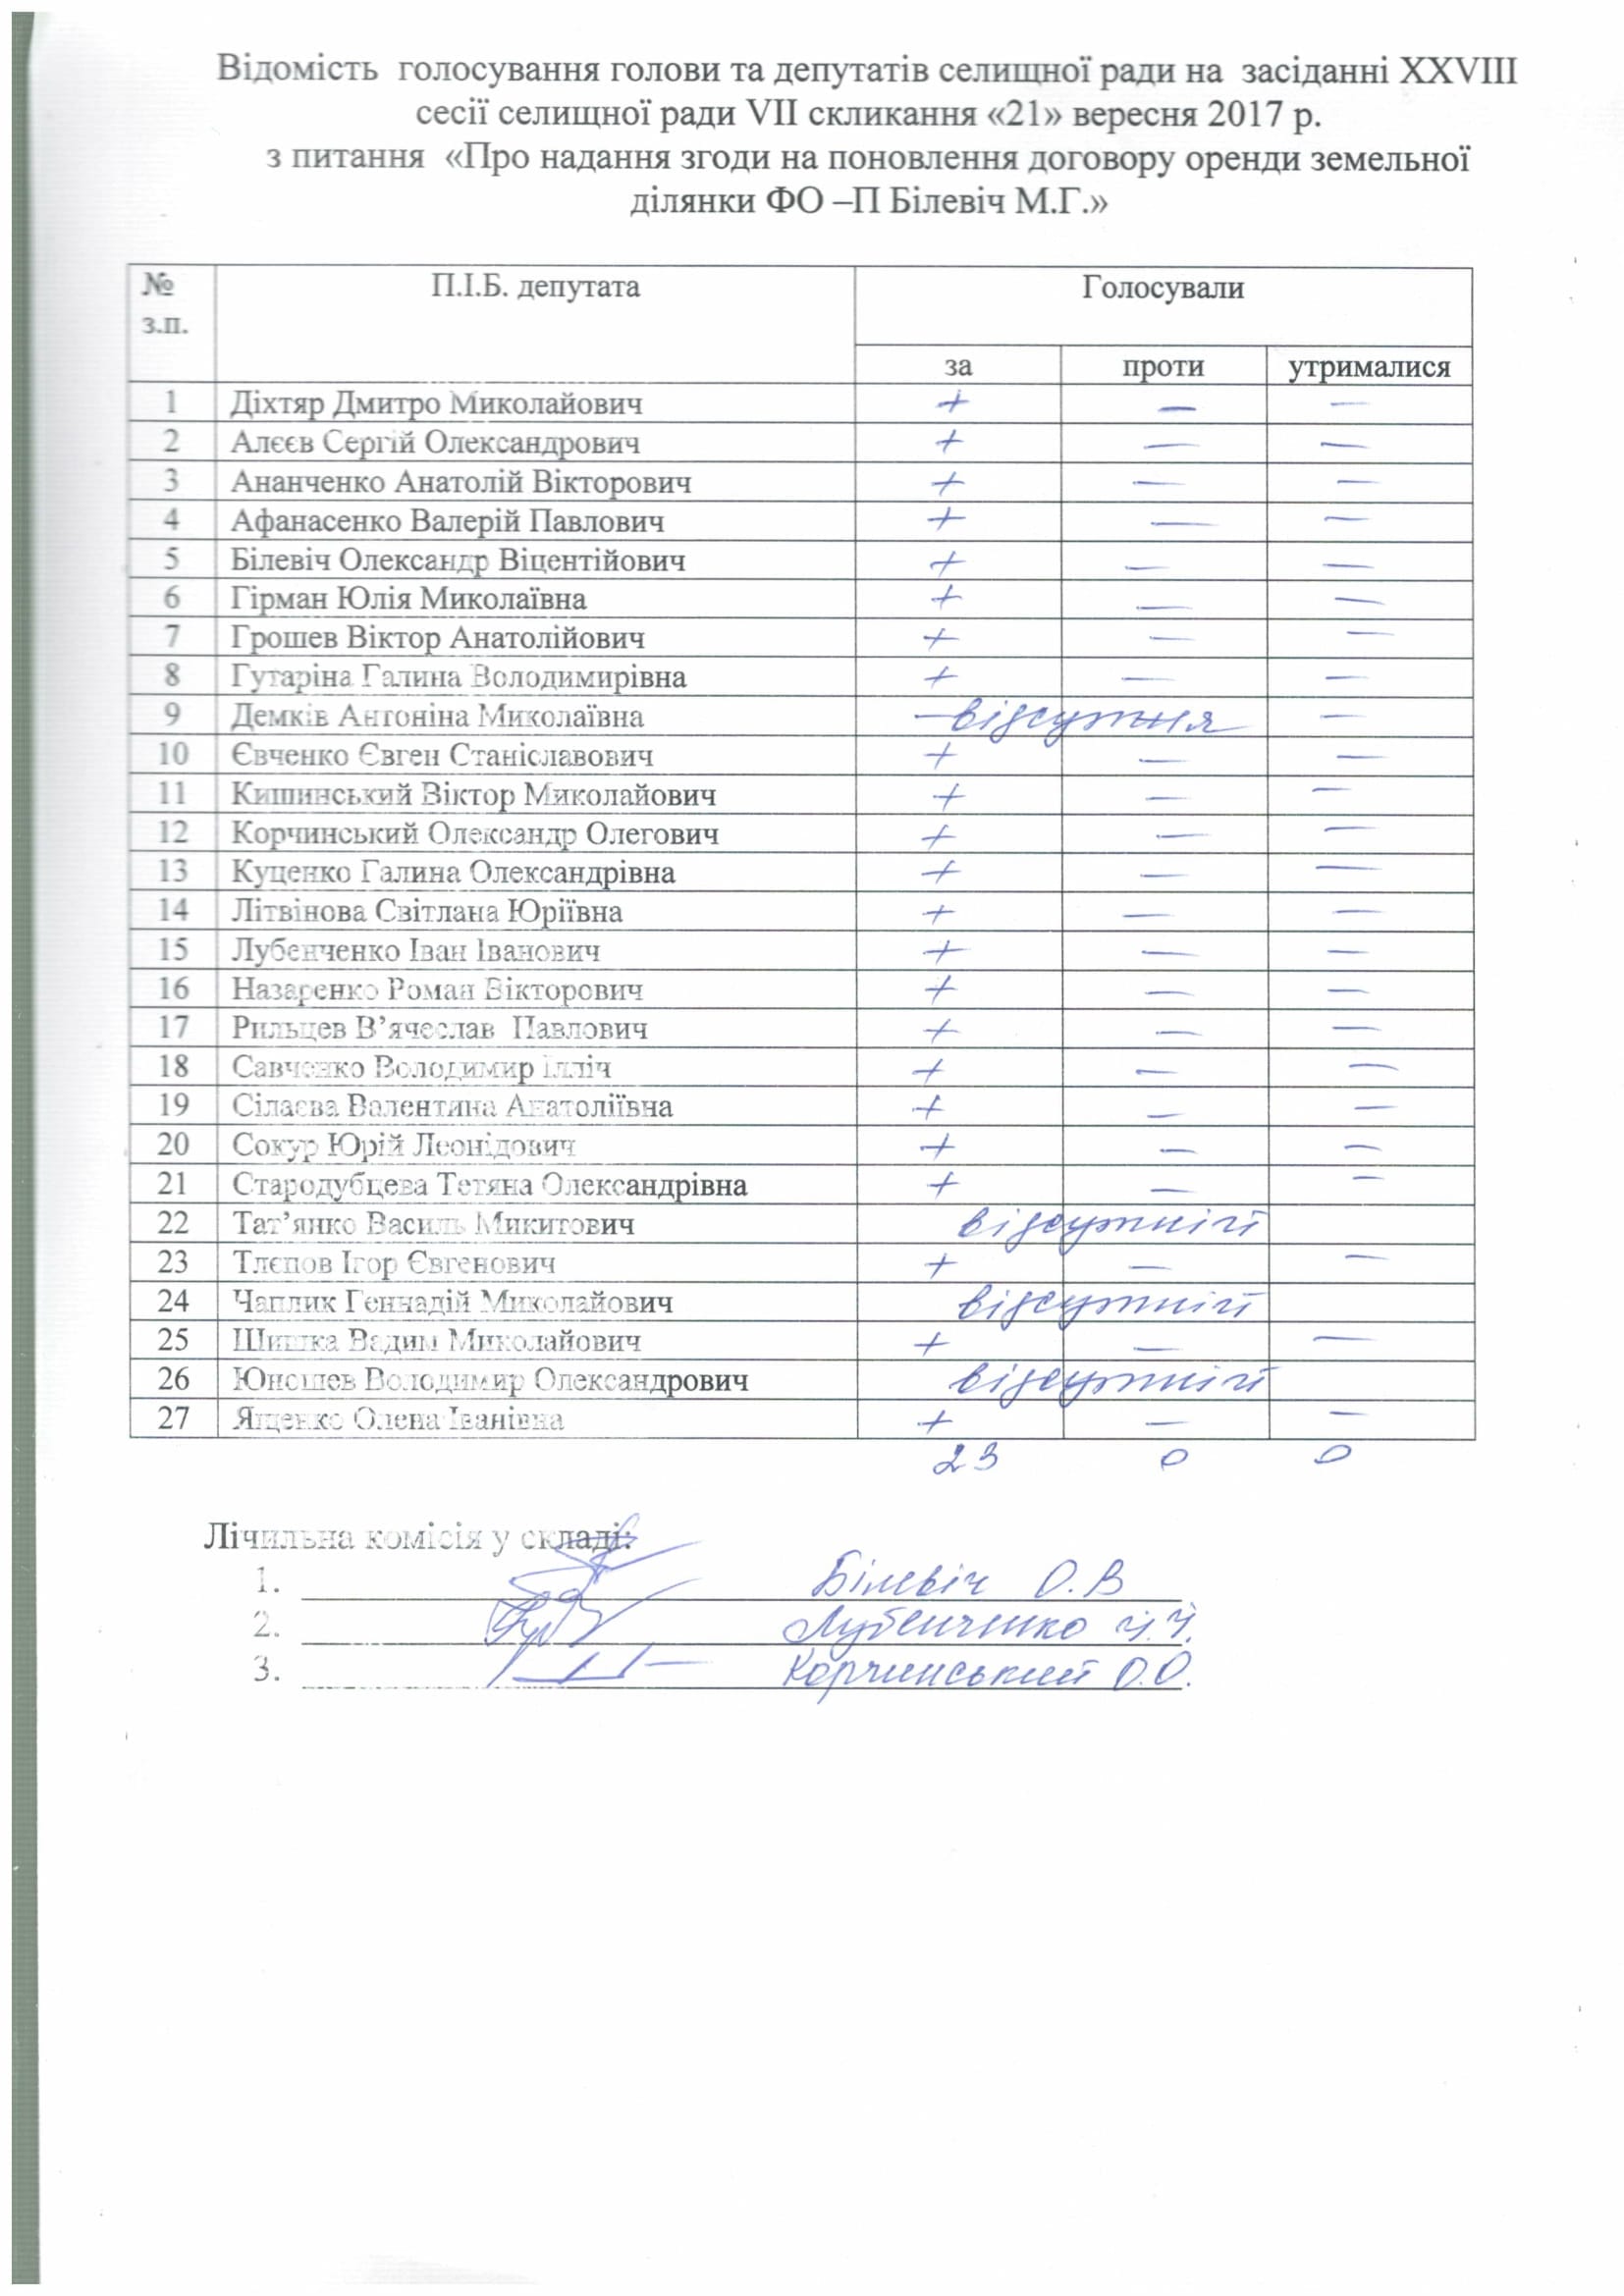 Відомість голосування голови та депутатів селищної ради на засіданні XXVIII
сесії селищної ради VII скликання «21» вересня 2017 р.
з питання «Про надання згоди на поновлення договору оренди земельної
ділянки ФО –П Білевіч М.Г.»
№ з.п. П.І.Б. депутата Голосували
за проти утрималися
1 Діхтяр Дмитро Миколайович + — —
2 Алєєв Сергій Олександрович + — —
3 Ананченко Анатолій Вікторович + — —
4 Афанасенко Валерій Павлович + — —
5 Білевіч Олександр Віцентійович + — —
6 Гірман Юлія Миколаївна + — —
7 Грошев Віктор Анатолійович + — —
8 Гутаріна Галина Володимирівна + — —
9 Демків Антоніна Миколаївна — відсутня —
10 Євченко Євген Станіславович + — —
11 Кишинський Віктор Миколайович + — —
12 Корчинський Олександр Олегович + — —
13 Куценко Галина Олександрівна + — —
14 Літвінова Світлана Юріївна + — —
15 Лубенченко Іван Іванович + — —
16 Назаренко Роман Вікторович + — —
17 Рильцев В’ячеслав Павлович + — —
18 Савченко Володимир Ілліч + — —
19 Сілаєва Валентина Анатоліївна + — —
20 Сокур Юрій Леонідович + — —
21 Стародубцева Тетяна Олександрівна + — —
22 Тат’янко Василь Микитович відсутній
23 Тлєпов Ігор Євгенович + — —
24 Чаплик Геннадій Миколайович відсутній
25 Шишка Вадим Миколайович + — —
26 Юношев Володимир Олександрович відсутній
27 Ященко Олена Іванівна + — —
23 0 0
Лічильна комісія у складі:
1. Білевіч О.В
2. Лубенченко І.І.
3. Корчинський О.О.